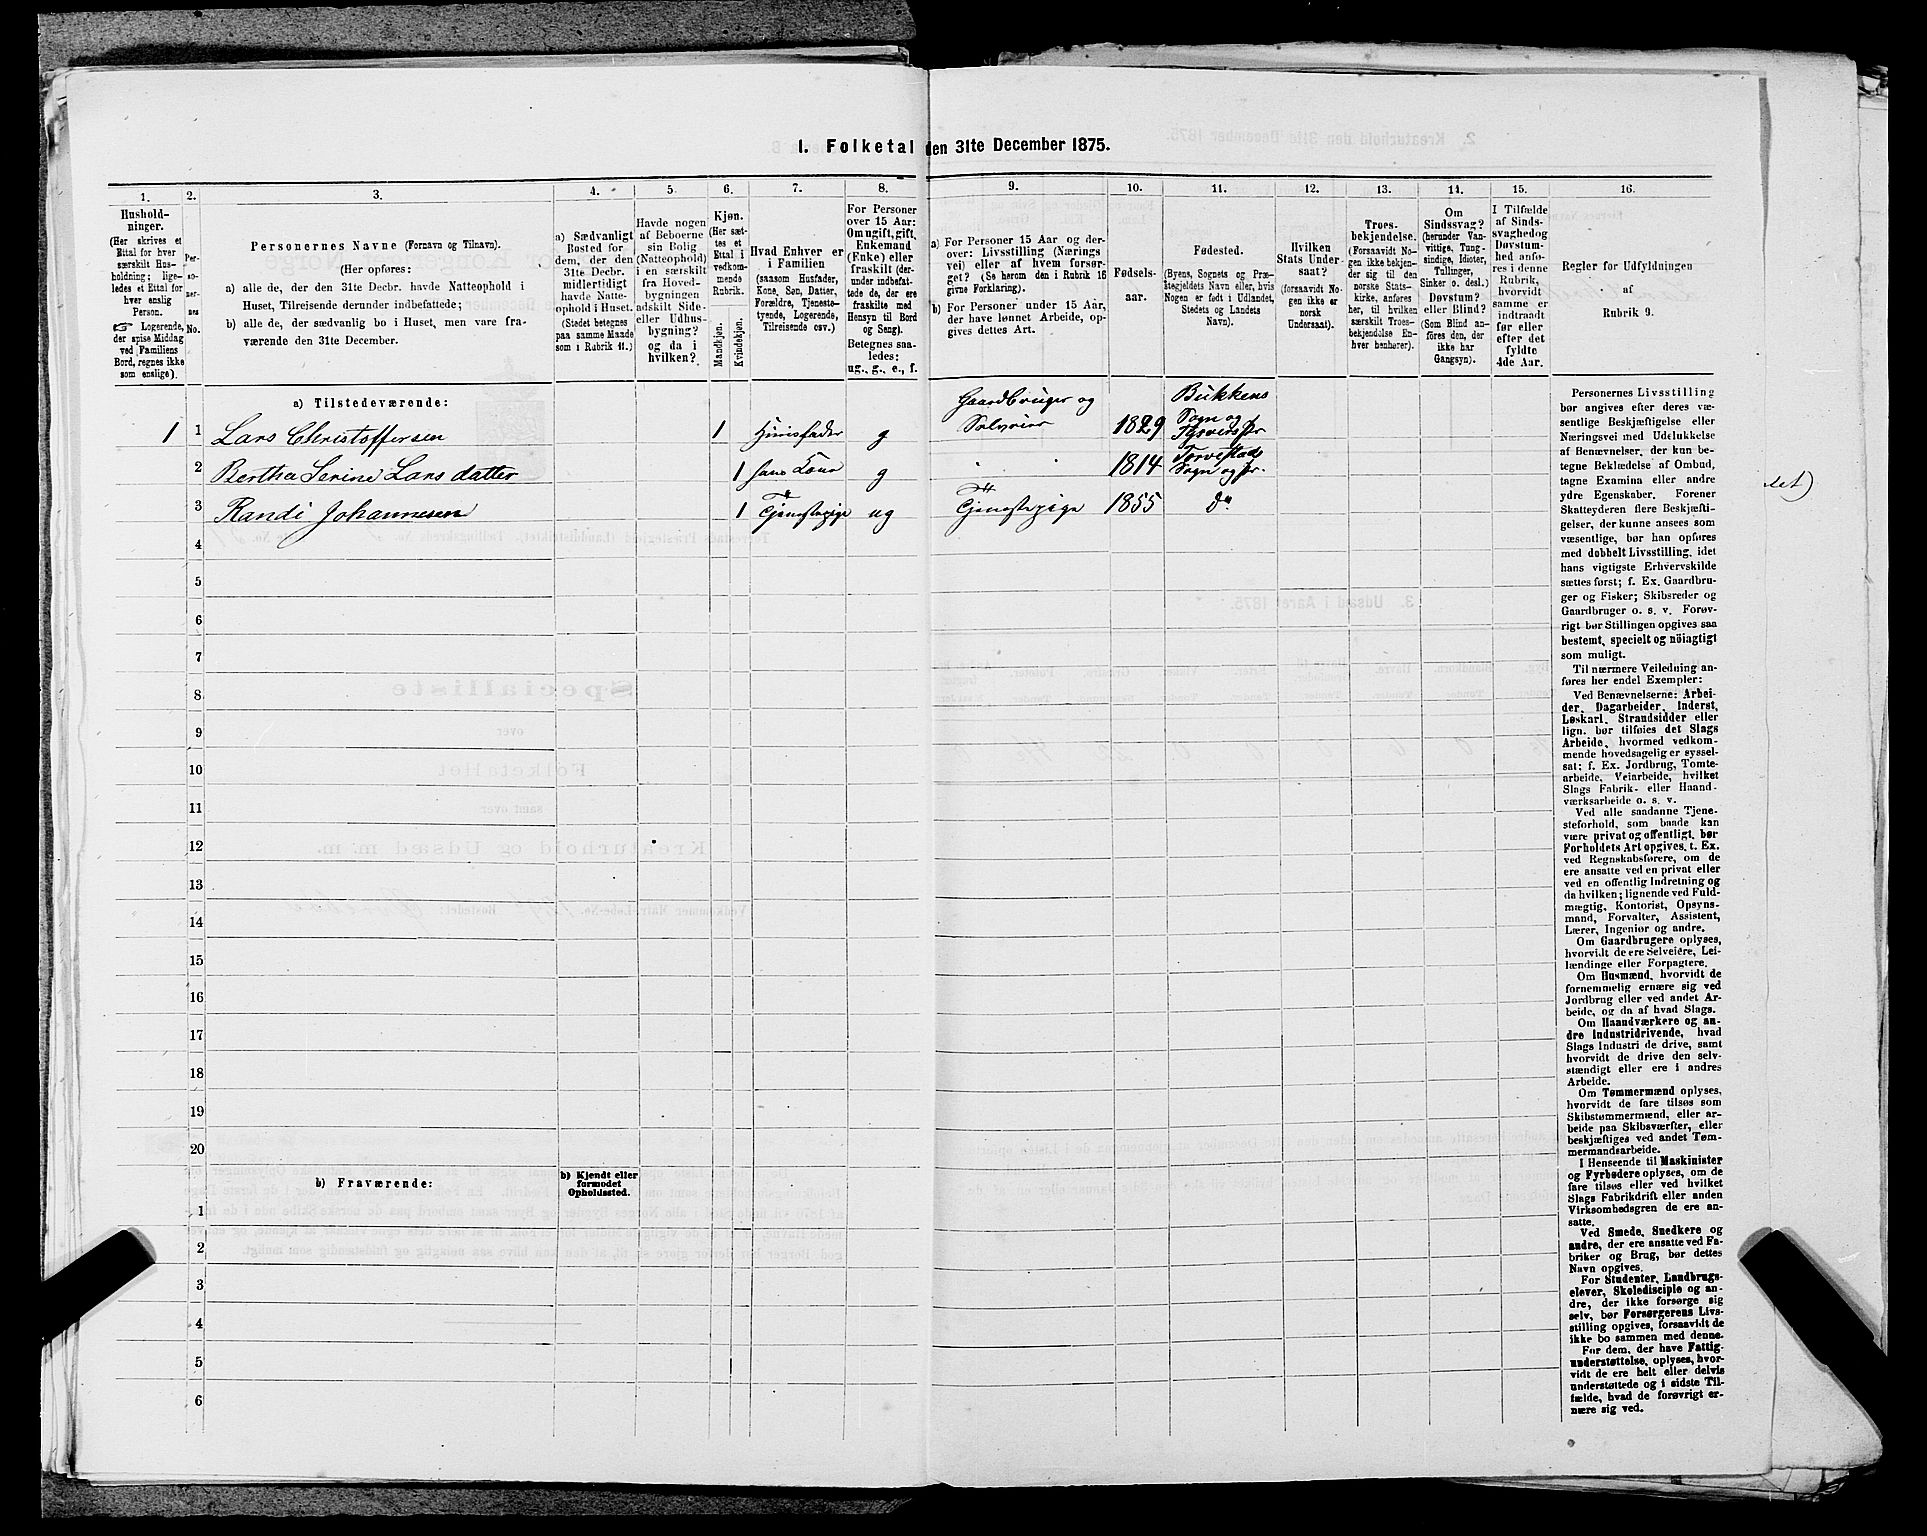 1. Folketal den 31te December 1875.
1. 2. 3. 4. 5. 6. 7. 8. 9. 10. 11. 12. 13. 14. 15. 16.
Hushold-
ninger.
(Her skrives et
Ettal for hver
særskilt Hus-
holdning; lige-
ledes et Ettal for
hver enslig
Person.
☞ Logerende,
der spise Middag
ved Familiens
Bord, regnes ikke
som enslige).
Per-
so-
ner-
nes
No.
Personernes Navne (Fornavn og Tilnavn).
(Her opføres:
a) alle de, der den 31te Decbr. havde Natteophold i
Huset, Tilreisende derunder indbefattede;
b) alle de, der sædvanlig bo i Huset, men vare fra-
værende den 31te December.
a) Sædvanligt
Bosted for
dem, der den
31te Decbr.
midlertidigt
havde Natte-
ophold i Huset.
(Stedet betegnes
paa samme Maade
som i Rubrik 11.)
Havde nogen
af Beboerne
sin Bolig
(Natteophold)
i en særskilt
fra Hoved-
bygningen
adskilt Side-
eller Udhus-
bygning?
og da i
hvilken?
Kjøn.
(Her sæt-
tes et
Ettal i
vedkom-
mende
Rubrik.
Mandkjøn.
Kvindekjøn.
Hvad Enhver er
i Familien
(saasom Husfader,
Kone, Søn, Datter,
Forældre, Tjeneste-
tyende, Logerende,
Tilreisende osv.)
For Personer
over 15 Aar:
Om ugift, gift,
Enkemand
(Enke) eller
fraskilt (der-
under indbefat-
tede de, der ere
fraskilte med
Hensyn til Bord
og Seng).
Betegnes saa-
ledes:
ug., g., e., f.
a) For Personer 15 Aar og der-
over: Livsstilling (Nærings
vei) eller af hvem forsør-
get? (Se herom den i Rubrik 16
givne Forklaring).
b) For Personer under 15 Aar,
der have lønnet Arbeide, op-
gives dettes Art.
Fødsels-
aar.
Fødested.
(Byens, Sognets og Præ-
stegjeldets Navn eller, hvis
Nogen er født i Udlandet,
Stedets og Landets
Navn).
Hvilken
Stats Under-
saat?
(forsaavidt No-
gen ikke er
norsk
Undersaat).
Troes-
bekjendelse.
(Forsaavidt No-
gen ikke bekjen-
der sig til den
norske Stats-
kirke, anføres
her, til hvilken
særskilt Troes-
bekjendelse En-
hver benhører).
Om
Sindssvag?
(herunder Van-
vittige, Tung-
sindige, Idioter,
Tullinger,
Sinker o. desl.)
Døvstum?
eller Blind?
(Som Blind an-
føres den, der
ikke har
Gangsyn).
I Tilfælde
af Sinds-
svaghed og
Døvstum-
hed anfø-
res i denne
Rubrik,
hvorvidt
samme er
indtraadt
før eller
efter det
fyldte
4de Aar.
Regler for Udfyldningen
af
Rubrik 9.
a) Tilstedeværende:
1 1 Lars Christoffersen 1 Huusfader g Gaardbruger og Selveier 1829 Bukkens Sogn og Tysvers Pr
2 Bertha Serine Larsdatter 1 hans Kone g 1814 Torvestads Sogn og Pr.
3 Randi Johannesen 1 Tjenestepige ug Tjenestepige 1855 do
4
5
6
7
8
9
10
11
12
13
14
15
16
17
18
19
20
b) Fraværende:
b) Kjendt eller
formodet
Opholdssted.
1
2
3
4
5
6
Personernes Livsstilling
bør angives efter deres væ-
sentlige Beskjæftigelse eller
Næringsvei med Udelukkelse
af Benævnelser, der kun be-
tegne Beklædelse af Ombud,
tagne Examina eller andre
ydre Egenskaber. Forener
Skatteyderen flere Beskjæfti-
gelser, der kunne ansees som
væsentlige, bør han opføres
med dobbelt Livsstilling, idet
hans vigtigste Erhvervskilde
sættes først; f. Ex. Gaardbru-
ger og Fisker; Skibsreder og
Gaardbruger o. s. v. Forøv-
rigt bør Stillingen opgives saa
bestemt, specielt og nöiagtigt
som muligt.
Til nærmere Veiledning an-
føres her endel Exempler:
Ved Benævnelserne: Arbei-
der, Dagarbeider, Inderst,
Løskarl, Strandsidder eller
lign. bør tilføies det Slags
Arbeide, hvormed vedkom-
mende hovedsagelig er syssel-
sat; f. Ex. Jordbrug, Tomte-
arbeide, Veiarbeide, hvilket
Slags Fabrik- eller Haand-
værksarbeide o. s. v.
Ved alle saadanne Tjene-
steforhold, som baade kan
være privat og offentligt, bør
Forholdets Art opgives, t. Ex.
ved Regnskabsførere, om de
ere ansatte ved en privat eller
ved en offentlig Indretning og
da hvilken; lignende ved Fuld-
mægtig, Kontorist, Opsyns-
mand, Forvalter, Assistent,
Lærer, Ingeniør og andre.
Om Gaardbrugere oplyses,
hvorvidt de ere Selveiere, Lei-
lændinge eller Forpagtere.
Om Husmænd, hvorvidt de
fornemmelig ernære sig ved
Jordbrug eller ved andet Ar-
beide, og da af hvad Slags.
Om Haandværkere og an-
dre Industridrivende, hvad
Slags Industri de drive, samt
hvorvidt de drive den selv-
stændigt eller ere i andres
Arbeide.
Om Tømmermænd oplyses,
hvorvidt de fare tilsøs som
Skibstømmermænd, eller ar-
beide paa Skibsværfter, eller
beskjæftiges ved andet Tøm-
mermandsarbeide.
I Henseende til Maskinister
og Fyrbødere oplyses, om de
fare tilsøs eller ved hvilket
Slags Fabrikdrift eller anden
Virksomhedsgren de ere an-
satte.
Ved Smede, Snedkere og
andre, der ere ansatte ved Fa-
briker og Brug, bør dettes
Navn opgives.
For Studenter, Landbrugs-
elever, Skoledisciple og an-
dre, der ikke forsørge sig
selv, bør Forsørgerens Livs-
stilling opgives, forsaavidt de
ikke bo sammen med denne.
For dem, der have Fattig-
understøttelse, oplyses, hvor-
vidt de ere helt eller delvis
understøttede og i sidste Til-
fælde, hvad de forøvrigt er-
nære sig ved.
det)